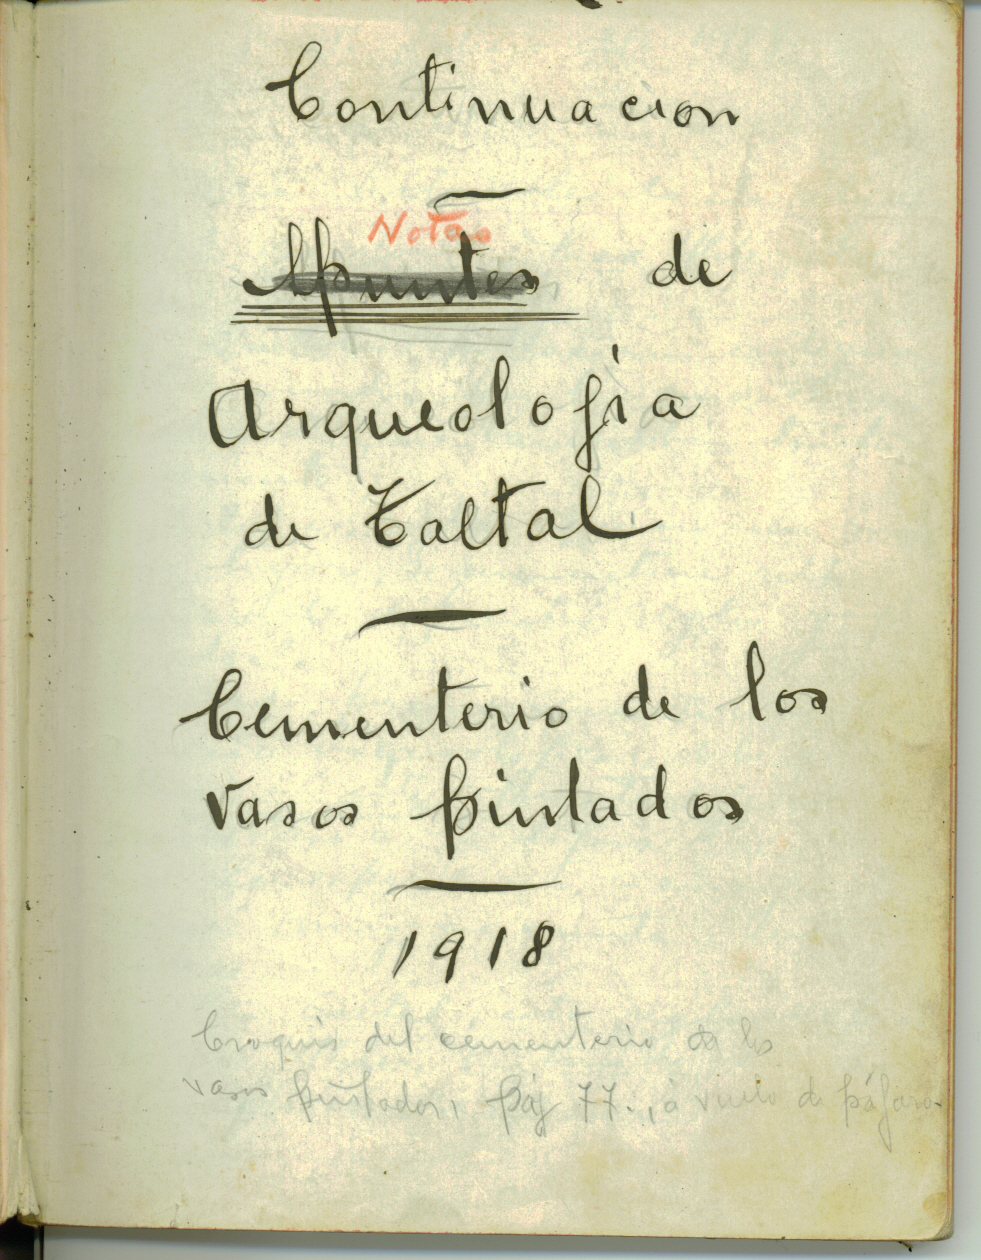 Continuacion
Notas
Apuntes de
Arqueolojia
de Taltal
Cementerio de los
vasos pintados
1918
Croquis del cementerio de los
vasos pintados, páj 77., á vuelo de pájaro.